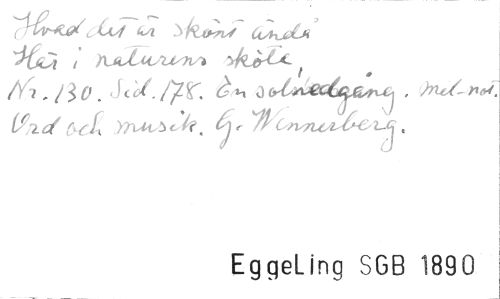 Hvad det är skönt ändå
Här i naturens sköte,
Nr. 130. Sid. 178. En solnedgång. mel-not.
Ord och musik. G. Wennerberg.
EggeLing SGB 1890